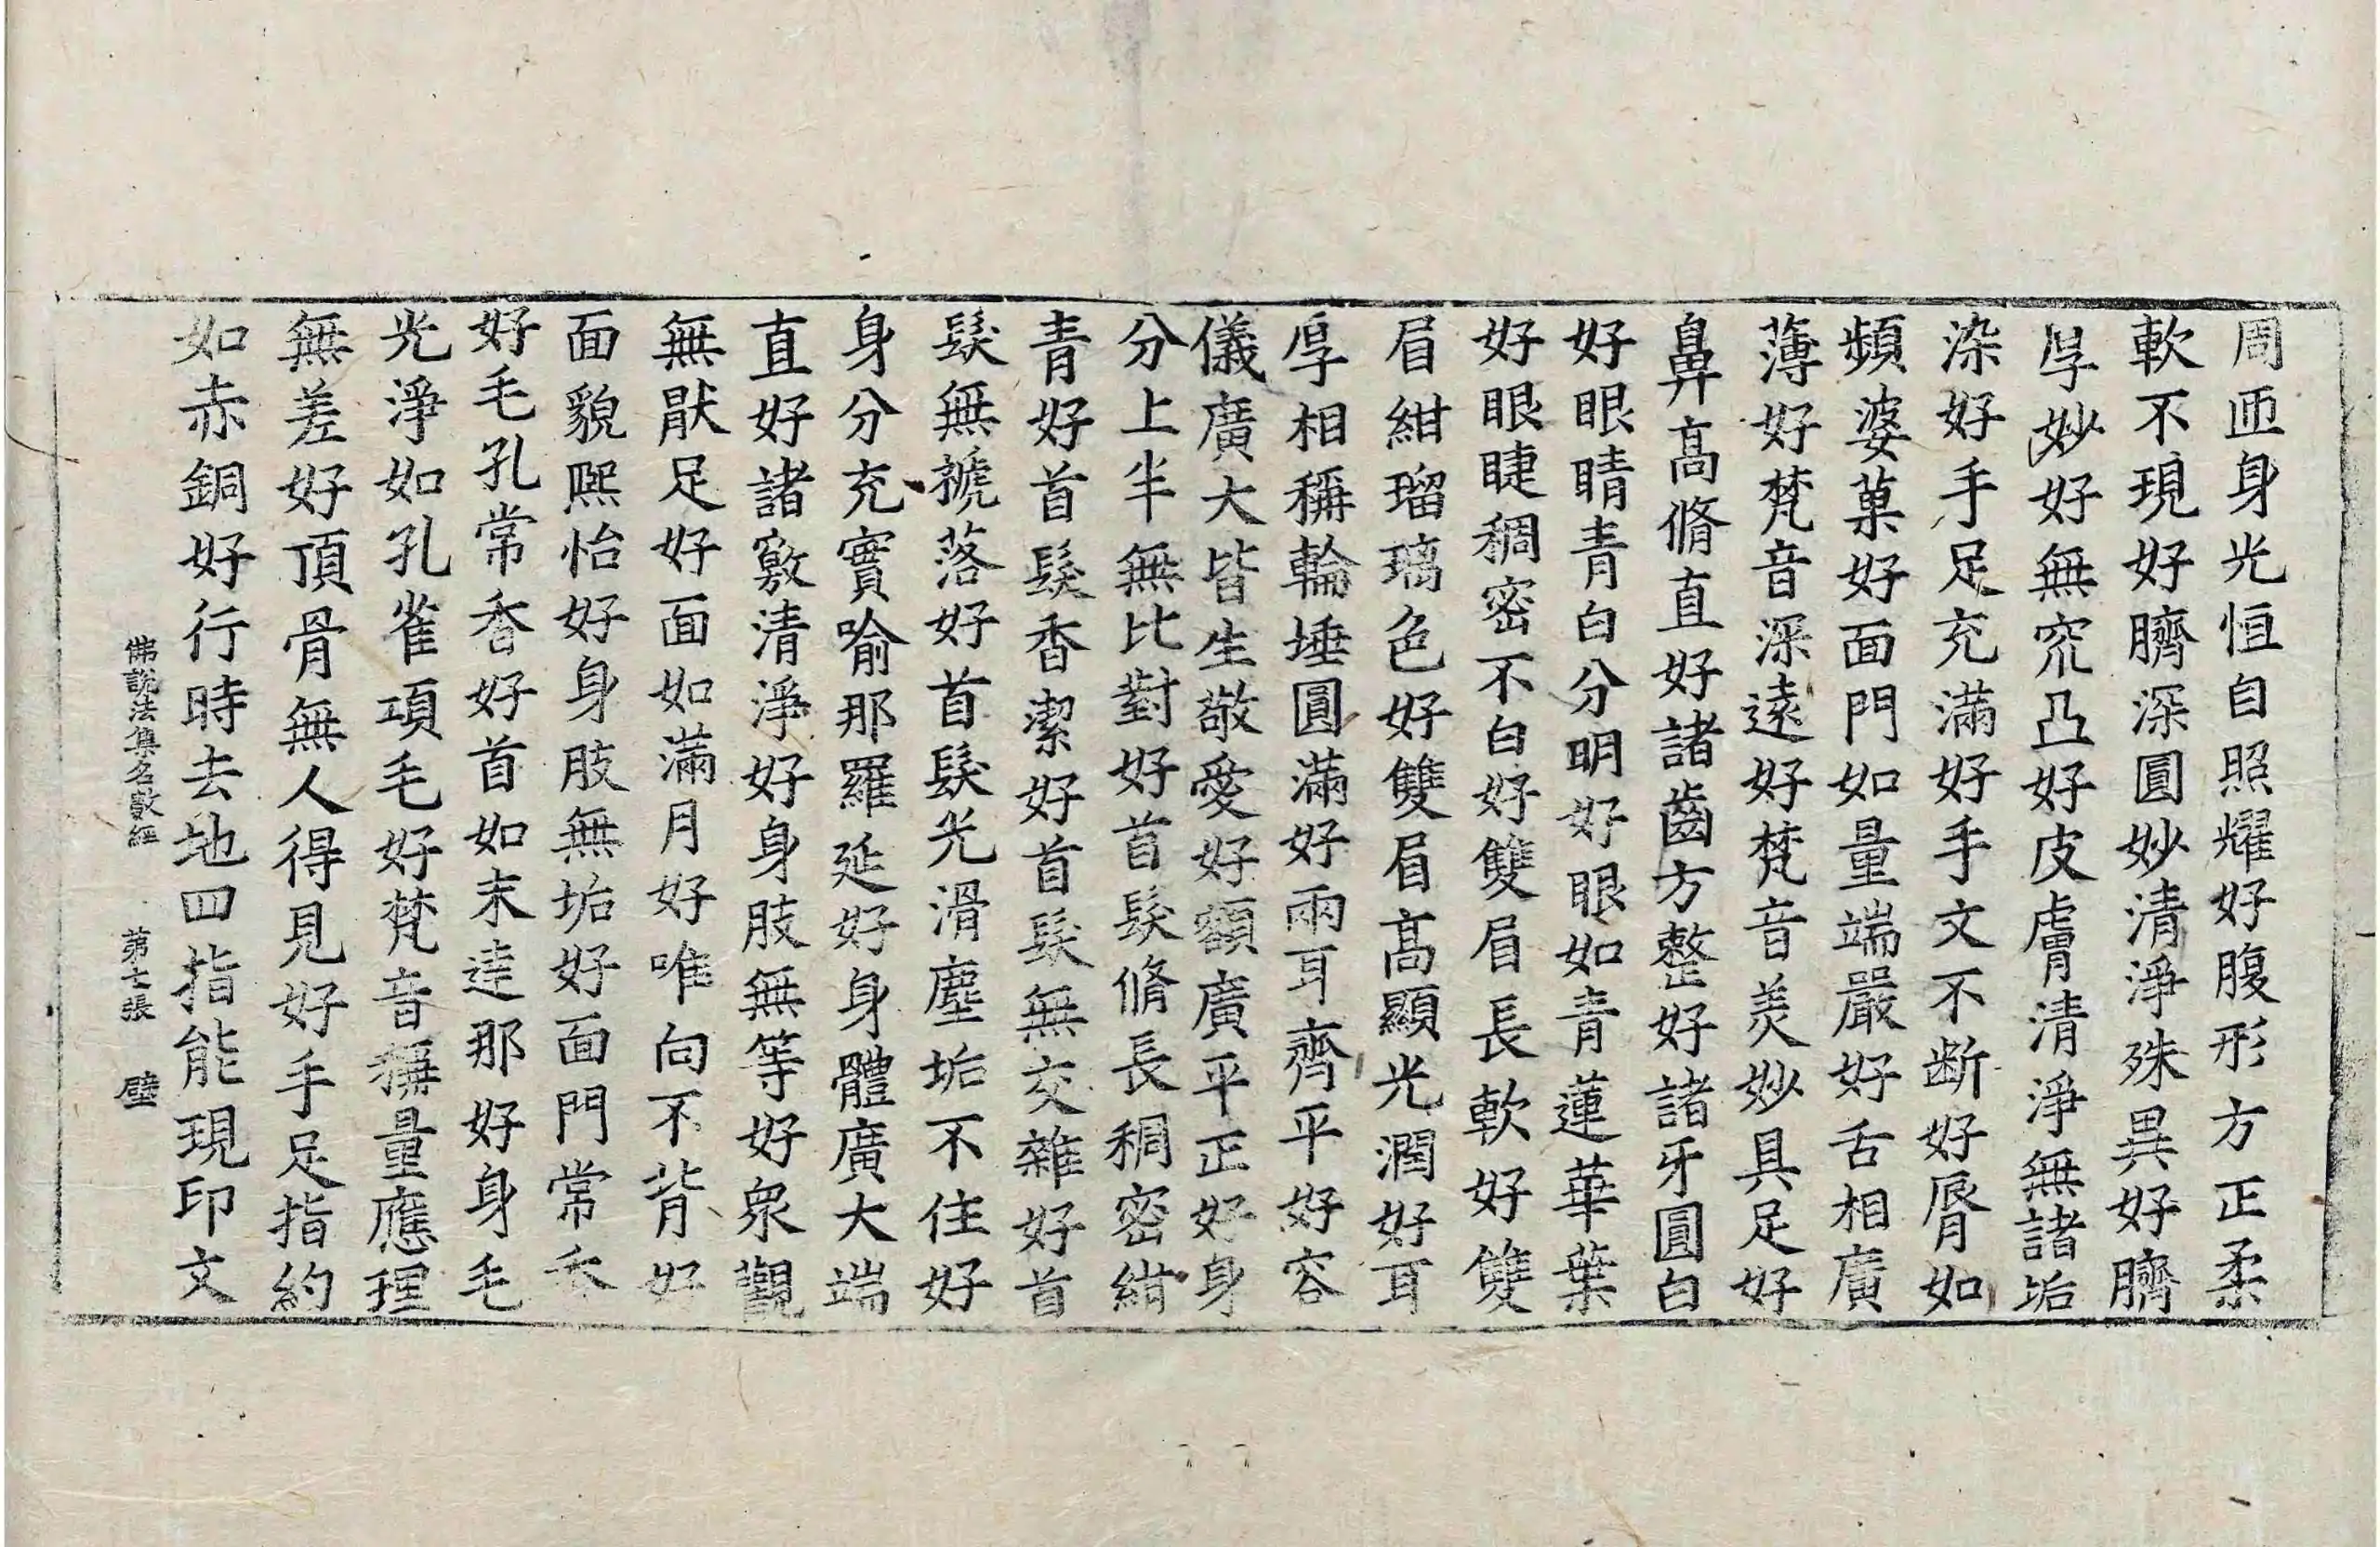 周匝身光恒自照耀好腹形方正柔
軟不現好臍深圓妙清淨殊異好臍
厚妙好無窊凸好皮膚清淨無諸垢
染好手足充滿好手文不断好脣如
頻婆菓好面門如量端嚴好舌相廣
薄好梵音深遠好梵音美妙具足好
鼻高脩直好諸齒方整好諸牙圓白
好眼睛青白分明好眼如青蓮華葉
好眼睫稠密不白好雙眉長軟好雙
眉紺瑠璃色好雙眉高顯光潤好耳
厚相稱輪埵圓滿好兩耳齊平好容
儀廣大皆生敬愛好額廣平正好身
分上半無比對好首髮脩長稠密紺
青好首髮香潔好首髮無交雜好首
髮無褫落好首髮光滑塵垢不住好
身分充實喻那羅延好身體廣大端
直好諸竅清淨好身肢無等好衆觀
無猒足好面如滿月好唯向不背好
面貌熙怡好身肢無垢好面門常香
好毛孔常香好首如末達那好身毛
光淨如孔雀項毛好梵音稱量應理
無差好頂骨無人得見好手足指約
如赤銅好行時去地四指能現印文
佛說法集名數經 第七張 壁